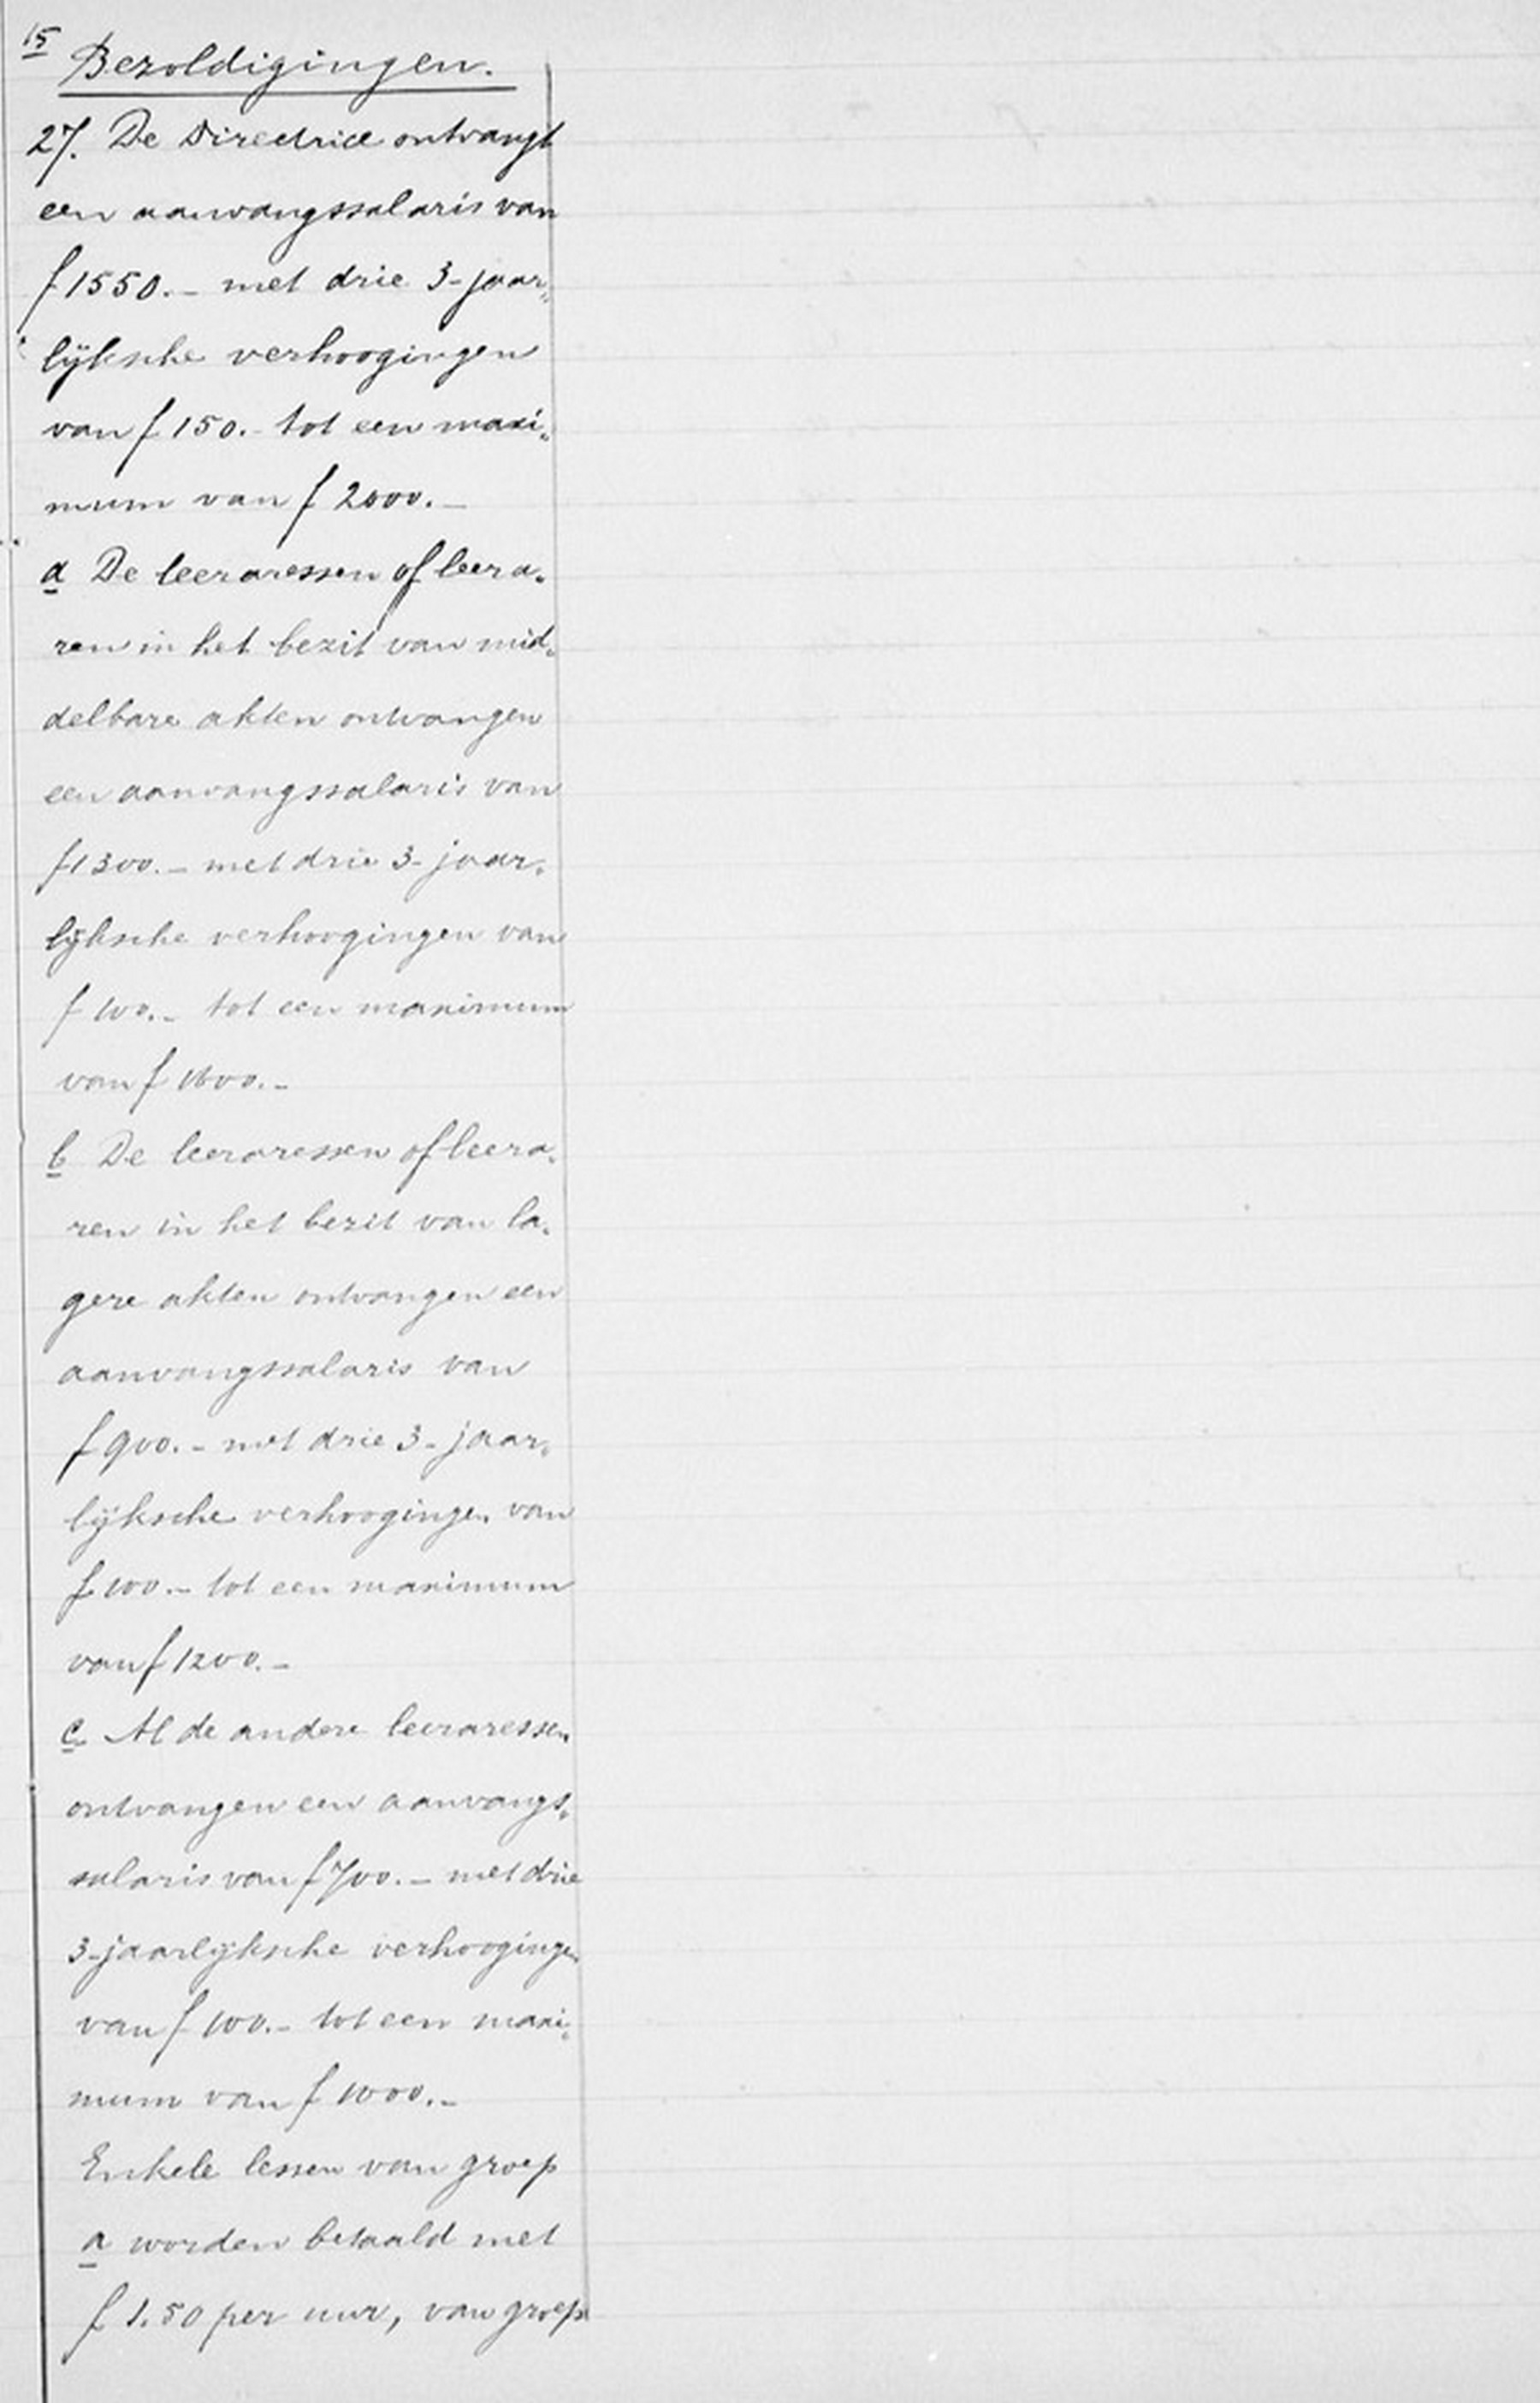 15
Bezoldigingen.
27. De Directrice ontvangt
een aanvangssalaris van
f 1550.- met drie 3-jaar„
lijksche verhoogingen
van f 150.- tot een maxi„
mum van f 2000.-
a De leeraressen of leera„
ren in het bezit van mid„
delbare akten ontvangen
een aanvangssalaris van
f 1300.- met drie 3-jaar„
lijksche verhoogingen van
f 100.- tot een maximum
van f 1600.-
b De leeraressen of leera„
ren in het bezit van la„
gere akten ontvangen een
aanvangssalaris van
f 900.- met drie 3-jaar„
lijksche verhoogingen van
f 100.- tot een maximum
van f 1200.-
c. Al de andere leeraressen
ontvangen een aanvangs„
salaris van f 700.- met drie
3-jaarlijksche verhoogingen
van f 100.- tot een maxi„
mum van f 1000.-
Enkele lessen van groep
a worden betaald met
f 1.50 per uur, van groep